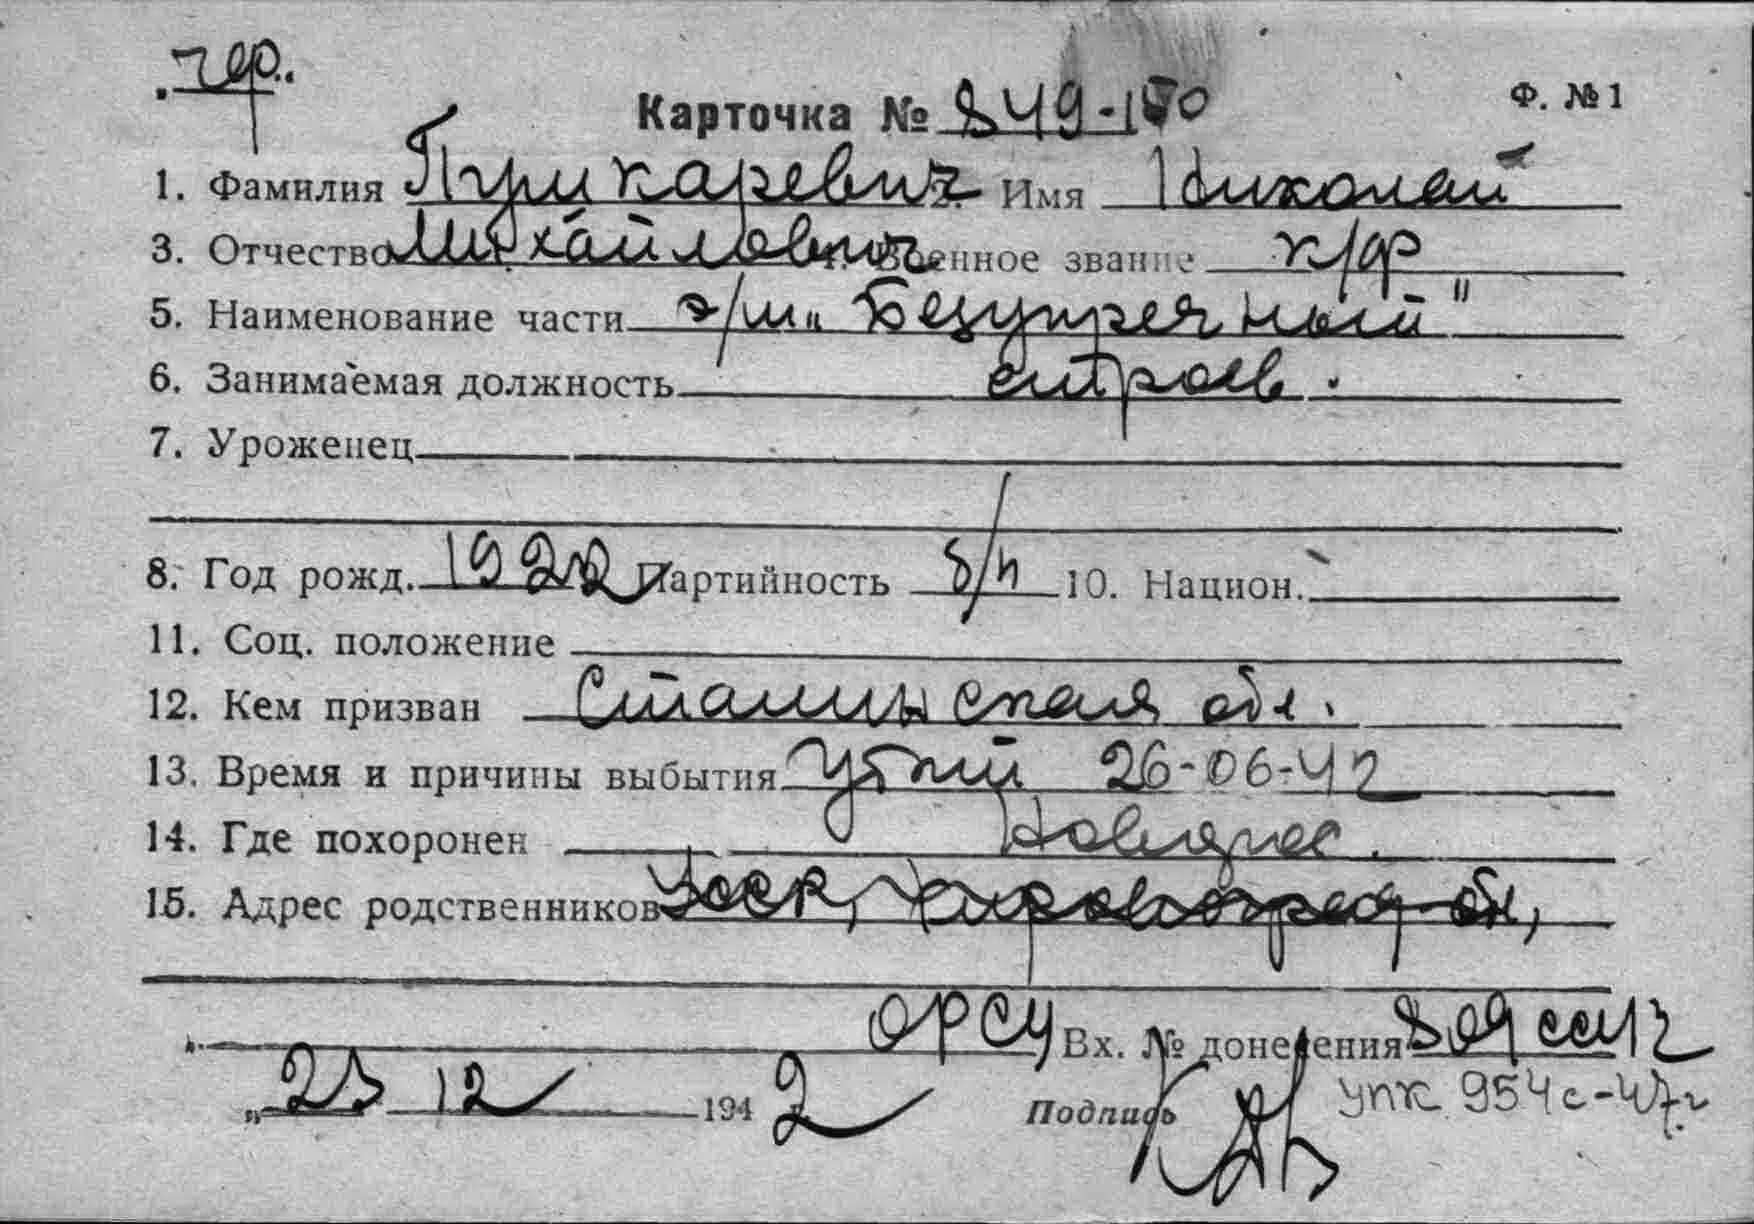 чер.
Карточка № 849-150 Ф. № 1
1. Фамилия Прикаревич 2. Имя Николай
3. Отчество Михайлович 4. Военное звание к/ф
5. Наименование части э/м „Безупречный"
6. Занимаемая должность строев.
7. Уроженец
8. Год рожд. 1922 Партийность б/п 10. Национ.
11. Соц. положение
12. Кем призван Сталинская обл.
13. Время и причины выбытия Убит 26-06-42
14. Где похоронен
15. Адрес родственников Кировоград обл,
ОРСУ Вх. № донесения 809 сс 42
„23 12 1942 Подпись упк 954с-47г